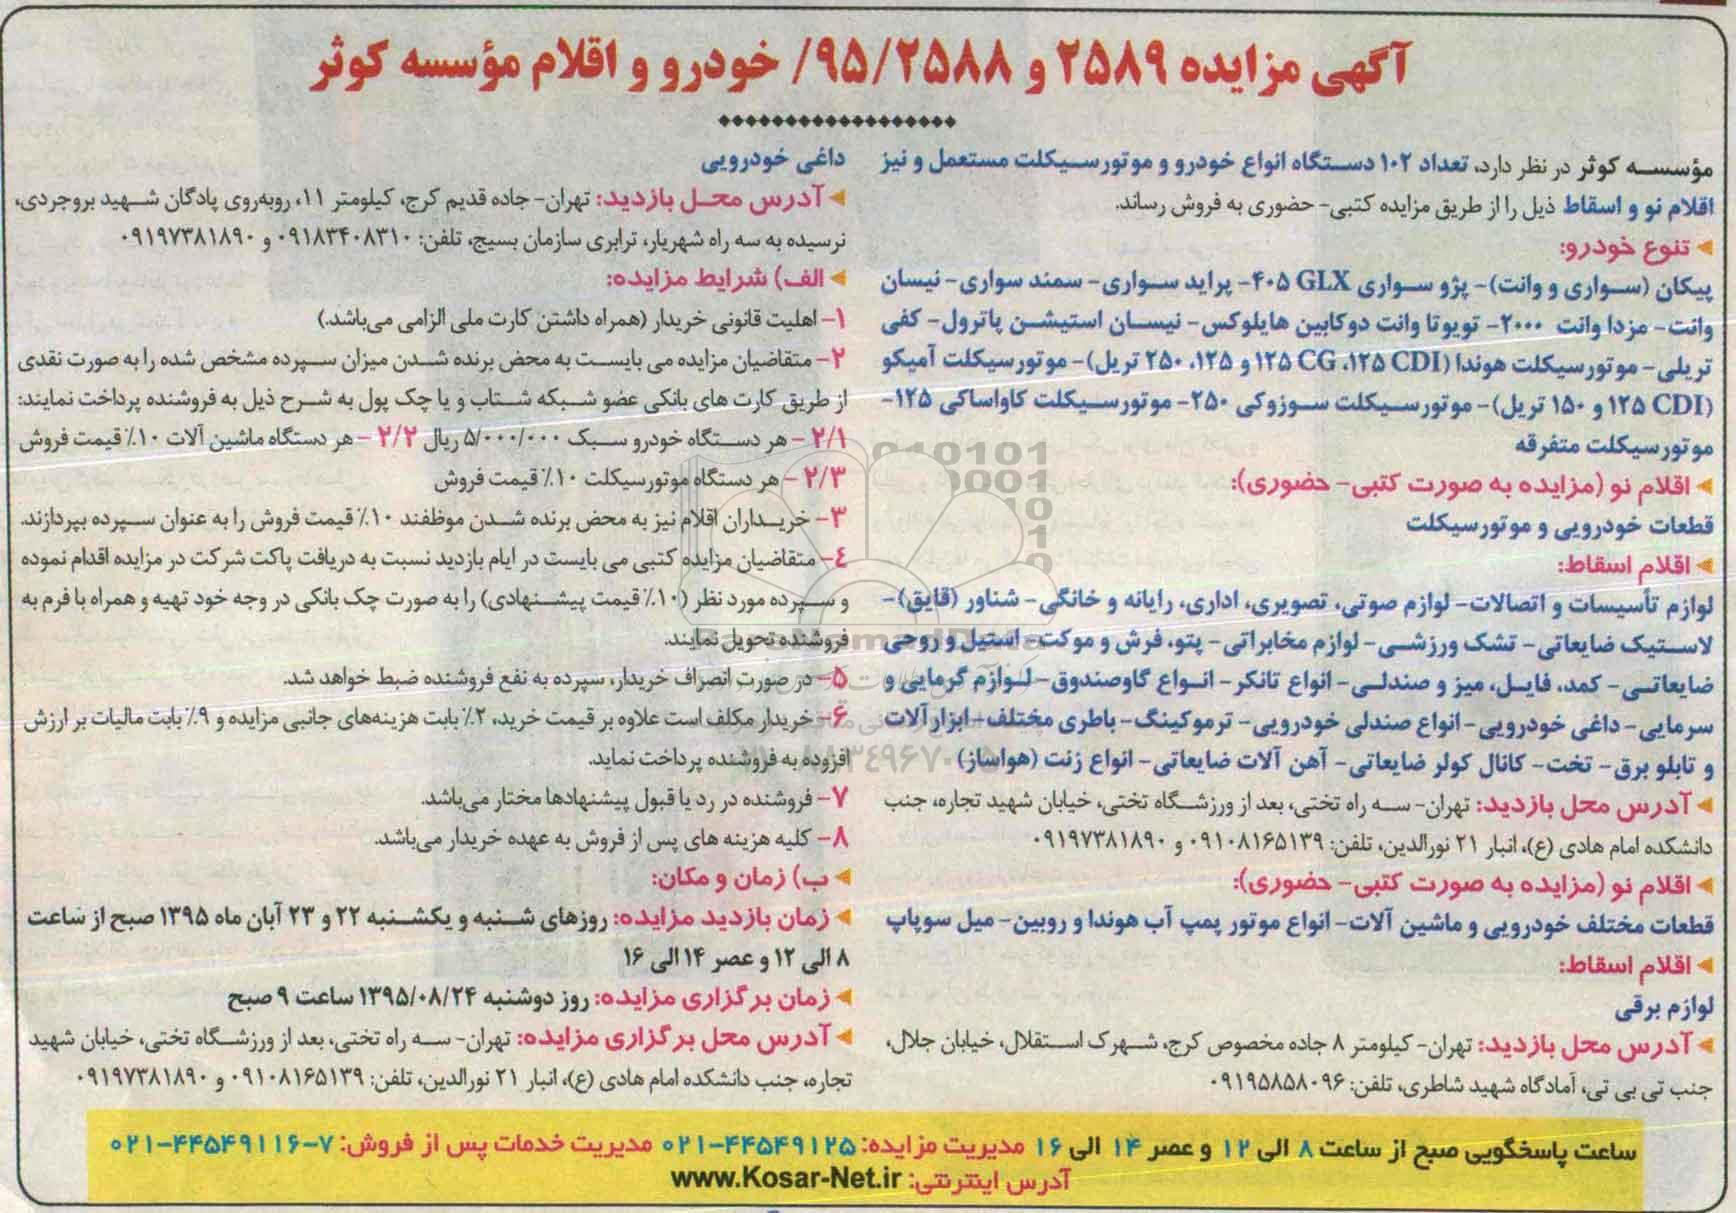 آگهی مزایده ۲۵۸۹ و ۹۵/۲۵۸۸/ خودرو و اقلام مؤسسه کوثر
مؤسسه کوثر در نظر دارد، تعداد ۱۰۲ دستگاه انواع خودرو و موتورسیکلت مستعمل و نیز
اقلام نو و اسقاط ذیل را از طریق مزایده کتبی- حضوری به فروش رساند.
تنوع خودرو:
پیکان (سواری و وانت)- پژو سواری ۴۰۵ GLX- پراید سواری- سمند سواری- نیسان
وانت- مزدا وانت ۲۰۰۰- تویوتا وانت دوکابین هایلوکس- نیسان استیشن پاترول- کفی
تریلی- موتورسیکلت هوندا (۱۲۵ CDI، ۱۲۵ CG و ۱۲۵، ۲۵۰ تریل)- موتورسیکلت آمیکو
(۱۲۵ CDI و ۱۵۰ تریل)- موتورسیکلت سوزوکی ۲۵۰- موتورسیکلت کاواساکی ۱۲۵-
موتورسیکلت متفرقه
اقلام نو (مزایده به صورت کتبی- حضوری):
قطعات خودرویی و موتورسیکلت
اقلام اسقاط:
لوازم تأسیسات و اتصالات- لوازم صوتی، تصویری، اداری، رایانه و خانگی- شناور (قایق)-
لاستیک ضایعاتی- تشک ورزشی- لوازم مخابراتی- پتو، فرش و موکت- استیل و روحی
ضایعاتی- کمد، فایل، میز و صندلی- انواع تانکر- انواع گاوصندوق- لوازم گرمایی و
سرمایی- داغی خودرویی- انواع صندلی خودرویی- ترموکینگ- باطری مختلف- ابزارآلات
و تابلو برق- تخت- کانال کولر ضایعاتی- آهن آلات ضایعاتی- انواع ژنت (هواساز)
آدرس محل بازدید: تهران- سه راه تختی، بعد از ورزشگاه تختی، خیابان شهید تجاره، جنب
دانشکده امام هادی (ع)، انبار ۲۱ نورالدین، تلفن: ۰۹۱۰۸۱۶۵۱۳۹ و ۰۹۱۹۷۳۸۱۸۹۰
اقلام نو (مزایده به صورت کتبی- حضوری):
قطعات مختلف خودرویی و ماشین آلات- انواع موتور پمپ آب هوندا و روبین- میل سوپاپ
اقلام اسقاط:
لوازم برقی
آدرس محل بازدید: تهران- کیلومتر ۸ جاده مخصوص کرج، شهرک استقلال، خیابان جلال،
جنب تی بی تی، آمادگاه شهید شاطری، تلفن: ۰۹۱۹۵۸۵۸۰۹۶
داغی خودرویی
آدرس محل بازدید: تهران- جاده قدیم کرج، کیلومتر ۱۱، روبه‌روی پادگان شهید بروجردی،
نرسیده به سه راه شهریار، ترابری سازمان بسیج، تلفن: ۰۹۱۸۳۴۰۸۳۱۰ و ۰۹۱۹۷۳۸۱۸۹۰
الف) شرایط مزایده:
۱- اهلیت قانونی خریدار (همراه داشتن کارت ملی الزامی می‌باشد.)
۲- متقاضیان مزایده می بایست به محض برنده شدن میزان سپرده مشخص شده را به صورت نقدی
از طریق کارت های بانکی عضو شبکه شتاب و یا چک پول به شرح ذیل به فروشنده پرداخت نمایند:
۲/۱ - هر دستگاه خودرو سبک ۵/۰۰۰/۰۰۰ ریال ۲/۲ - هر دستگاه ماشین آلات ۱۰٪ قیمت فروش
۲/۳ - هر دستگاه موتورسیکلت ۱۰٪ قیمت فروش
۳- خریداران اقلام نیز به محض برنده شدن موظفند ۱۰٪ قیمت فروش را به عنوان سپرده بپردازند.
۴- متقاضیان مزایده کتبی می بایست در ایام بازدید نسبت به دریافت پاکت شرکت در مزایده اقدام نموده
و سپرده مورد نظر (۱۰٪ قیمت پیشنهادی) را به صورت چک بانکی در وجه خود تهیه و همراه با فرم به
فروشنده تحویل نمایند.
۵- در صورت انصراف خریدار، سپرده به نفع فروشنده ضبط خواهد شد.
۶- خریدار مکلف است علاوه بر قیمت خرید، ۲٪ بابت هزینه‌های جانبی مزایده و ۹٪ بابت مالیات بر ارزش
افزوده به فروشنده پرداخت نماید.
۷- فروشنده در رد یا قبول پیشنهادها مختار می‌باشد.
۸- کلیه هزینه های پس از فروش به عهده خریدار می‌باشد.
ب) زمان و مکان:
زمان بازدید مزایده: روزهای شنبه و یکشنبه ۲۲ و ۲۳ آبان ماه ۱۳۹۵ صبح از ساعت
۸ الی ۱۲ و عصر ۱۴ الی ۱۶
زمان برگزاری مزایده: روز دوشنبه ۱۳۹۵/۰۸/۲۴ ساعت ۹ صبح
آدرس محل برگزاری مزایده: تهران- سه راه تختی، بعد از ورزشگاه تختی، خیابان شهید
تجاره، جنب دانشکده امام هادی (ع)، انبار ۲۱ نورالدین، تلفن: ۰۹۱۰۸۱۶۵۱۳۹ و ۰۹۱۹۷۳۸۱۸۹۰
ساعت پاسخگویی صبح از ساعت ۸ الی ۱۲ و عصر ۱۴ الی ۱۶ مدیریت مزایده: ۴۴۵۴۹۱۲۵-۰۲۱ مدیریت خدمات پس از فروش: ۷-۴۴۵۴۹۱۱۶-۰۲۱
آدرس اینترنتی: www.Kosar-Net.ir